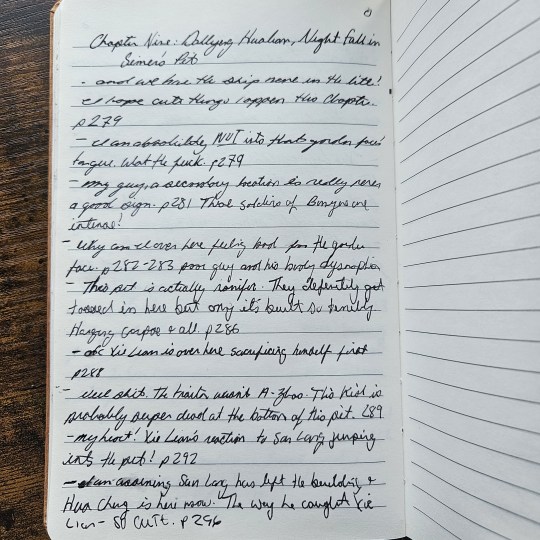 Chapter Nine: Dallying Hualian, Night Fall in
Sinner's Pit
- and we have the ship name in the title!
I hope cute things happen this chapter.
p279
- I am absolutely NOT into that gordon face's
tongue. What the fuck. p279
- my guy, a secondary location is really never
a good sign. p281 Those soldiers of Banyue are
intense!
- Why am I over here feeling bad for the
face. p282-283 poor guy and his body dysmorphia
- This pit is actually . They definitely get
tossed in here but omg it's built so
Hanging corpse & all. p286
- ofc Xie Lian is over here sacrificing himself first
p288
- well shit. The traitor wasn't A-Zhao. This kid is
probably super dead at the bottom of this pit. 289
- my heart! Xie Lian's reaction to San Lang jumping
into the pit! p292
- I am assuming San Lang has left the building &
Hua Cheng is here now. The way he caught Xie
Lian - SO CUTE. p296